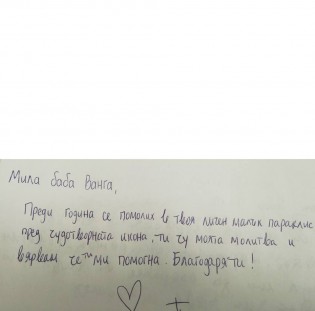 Мила баба Ванга,
Преди година се помолих в твоя личен малък параклис
пред чудотворната икона, ти чу моята молитва и
вярвам че ти ми помогна. Благодаря ти!